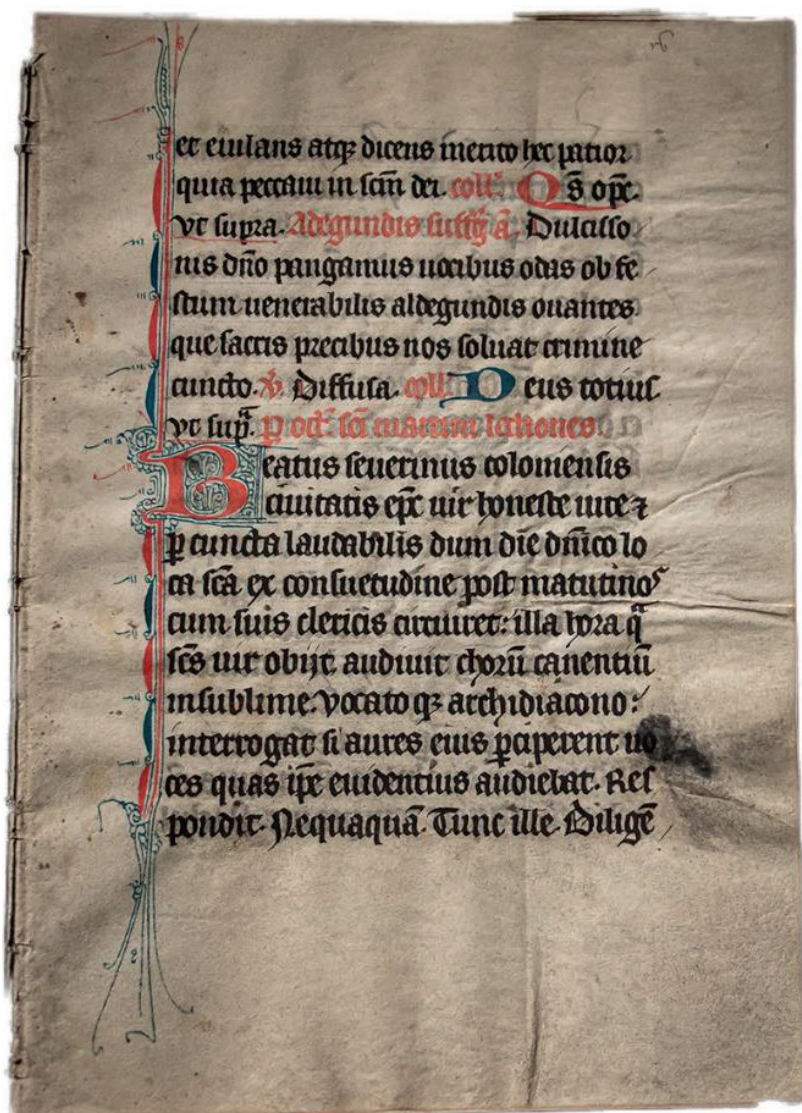 et eiulans atqꝫ dicens merito hec patior
quia peccaui in scm̄ dei. coll̄. Qs̄ op̄c.
vt supra. Adegundis suffrḡ a᷎. Dulciso
nis dn̄o pangamus uocibus odas ob fe
stum uenerabilis aldegundis ouantes
que sacris precibus nos soluat crimine
cuncto. ꝟ. Diffusa. coll̄. Deus totius
vt supͣ. ꝑ oct̄. sc̄i martini lectiones.
Beatus seuerinus coloniensis
ciuitatis ep̄c uir honeste uite ⁊
ꝑ cuncta laudabilis dum die dn̄ico lo
ca sc̄a ex consuetudine post matutinos
cum suis clericis circuiret: illa hora qͣ
sc̄s uir obijt audiuit chorū canentiū
in sublime. vocato qꝫ archidiacono:
interrogat si aures eius ꝑciperent uo
ces quas ip̄e euidentius audiebat. Res
pondit. Nequaquā. Tunc ille. Diligē